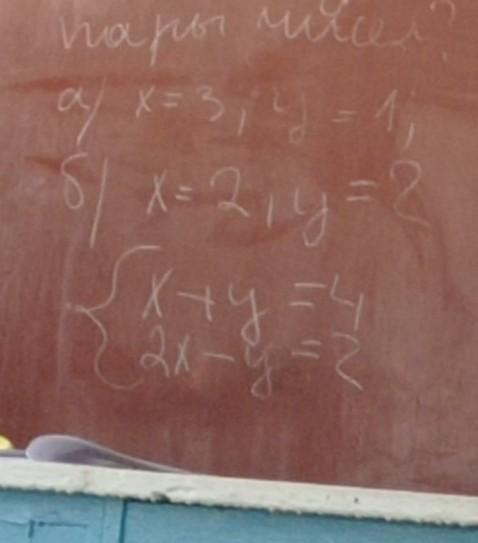 пары чисел?
а) x = 3; y = 1;
б) x = 2; y = 2
x + y = 4
2x - y = 2